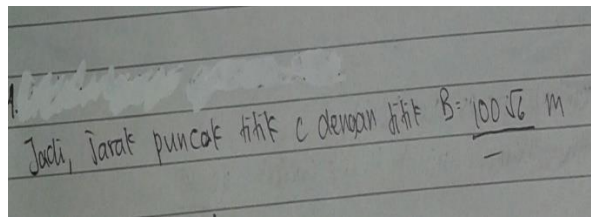 1.
Jadi, Jarak puncak titik C dengan titik B = 100√6 m